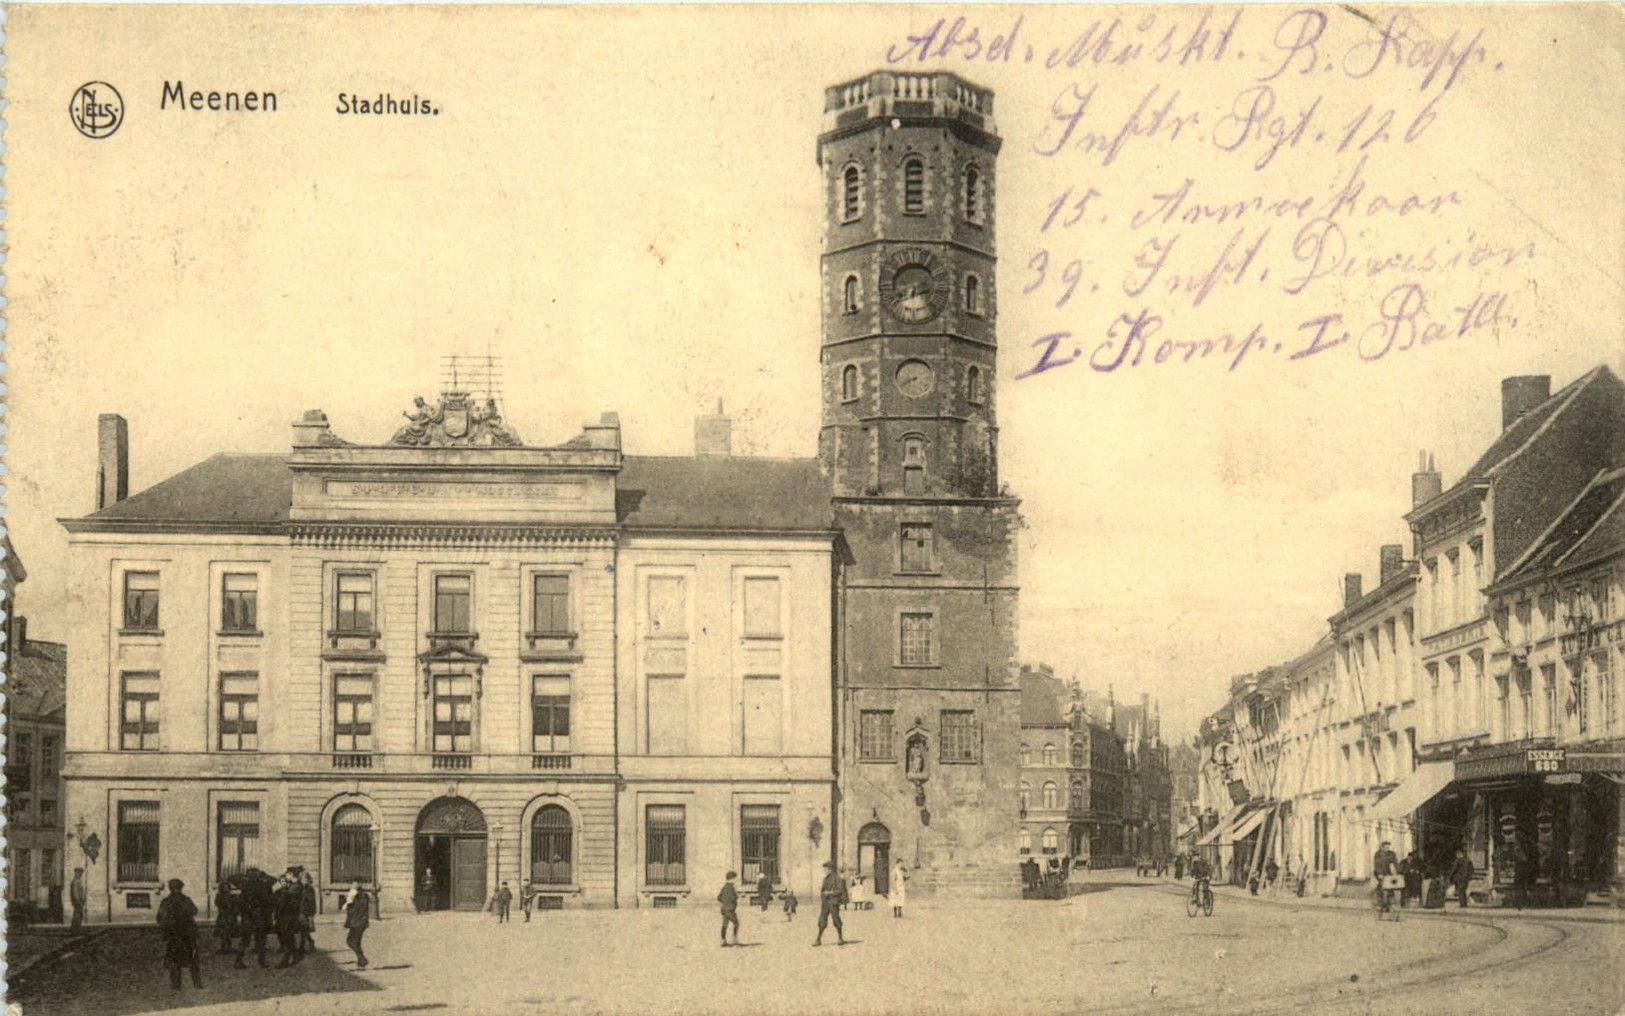 NELS
Meenen Stadhuis.
Absd. Muskt. B. Kapp.
Inftr. Rgt. 126
15. Armeekoor
39. Inft. Division
I. Komp. I. Batll.
ESSENCE